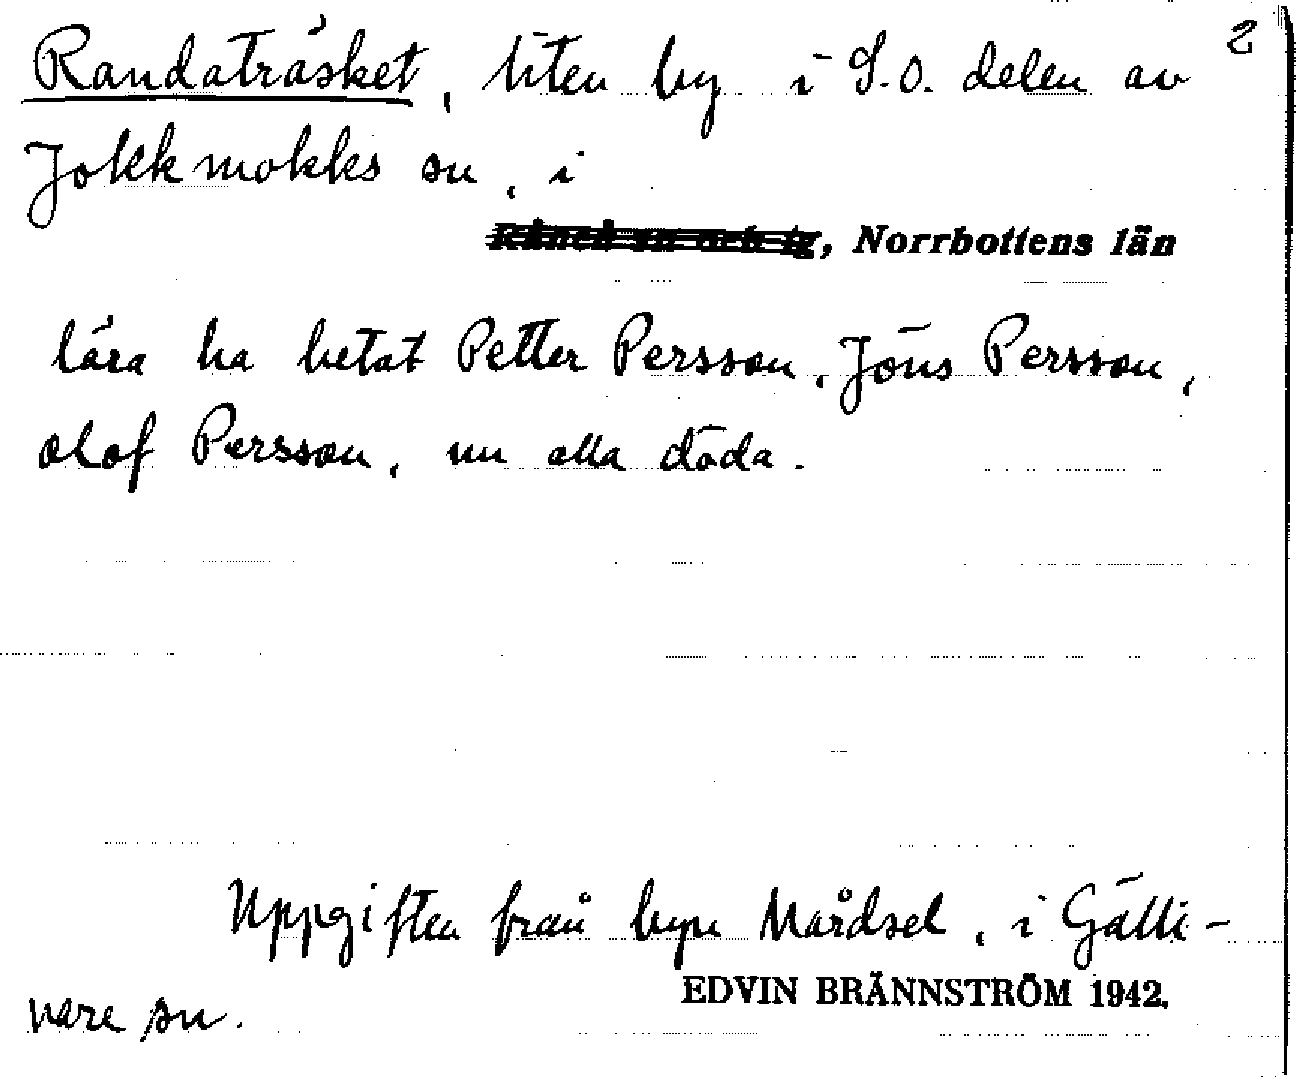 2
Randaträsket, liten by i S.O. delen av
Jokkmokks sn, i
Råneå sn och tg, Norrbottens län
lära ha hetat Petter Persson, Jöns Persson,
Olof Persson, nu alla döda.
Uppgiften från byn Mårdsel, i Gälli-
EDVIN BRÄNNSTRÖM 1942.
vare sn.